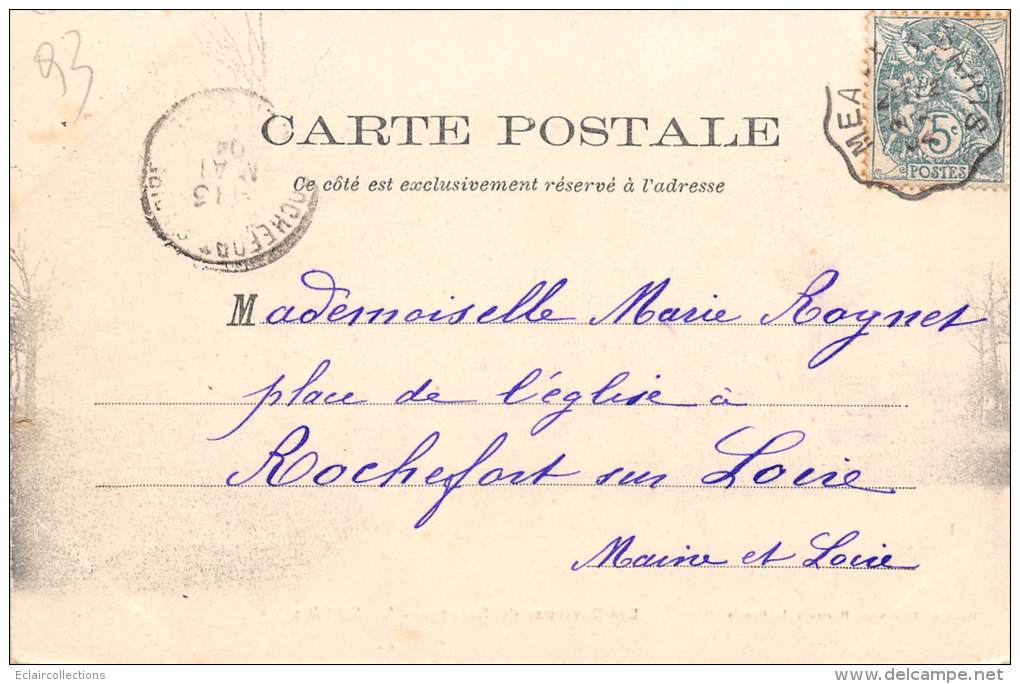 93
CARTE POSTALE
Ce côté est exclusivement réservé à l'adresse
5c
POSTES
13
MAI
04
Mademoiselle Marie Roynet
place de l'église à
Rochefort sur Loire
Maine et Loire
Eclaircollections
delcampe.net